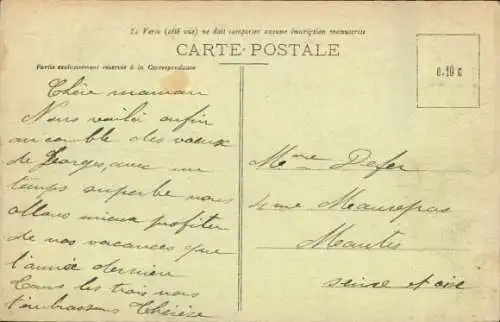 Le Verre (côté vue) ne doit comporter aucune inscription manuscrite
CARTE POSTALE
Partie exclusivement réservée à la Correspondance
0.10 c
Chère maman
Nous voilà enfin
au comble des vœux
de Georges, avec un
temps superbe nous
allons mieux profiter
de nos vacances que
l'année dernière
Tous les trois nous
t'embrassons Thérèse
Mme Defer
4 rue Maurepas
Mantes
seine et oise